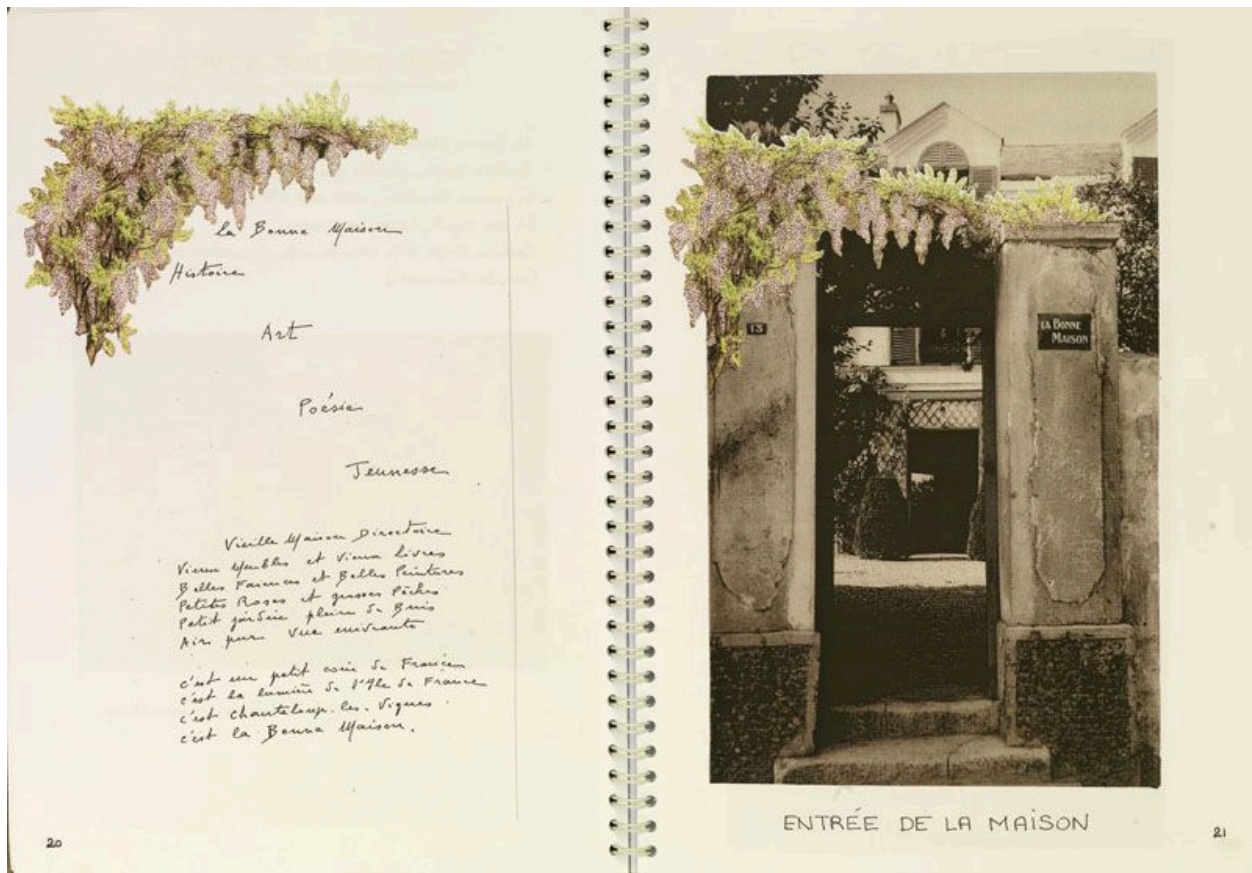 la Bonne Maison
Histoire
Art
Poésie
Jeunesse
Vieille Maison Directoire
Vieux Meubles et vieux livres
Belles Faiences et Belles Peintures
Petites Roses et grosses Pêches
Petit jardin plein de Buis
Air pur vue enivrante
c'est un petit coin de France
c'est la lumière de l'Ile de France
c'est Chanteloup-les-Vignes
c'est la Bonne Maison.
20
13
LA BONNE
MAISON
ENTRÉE DE LA MAISON
21